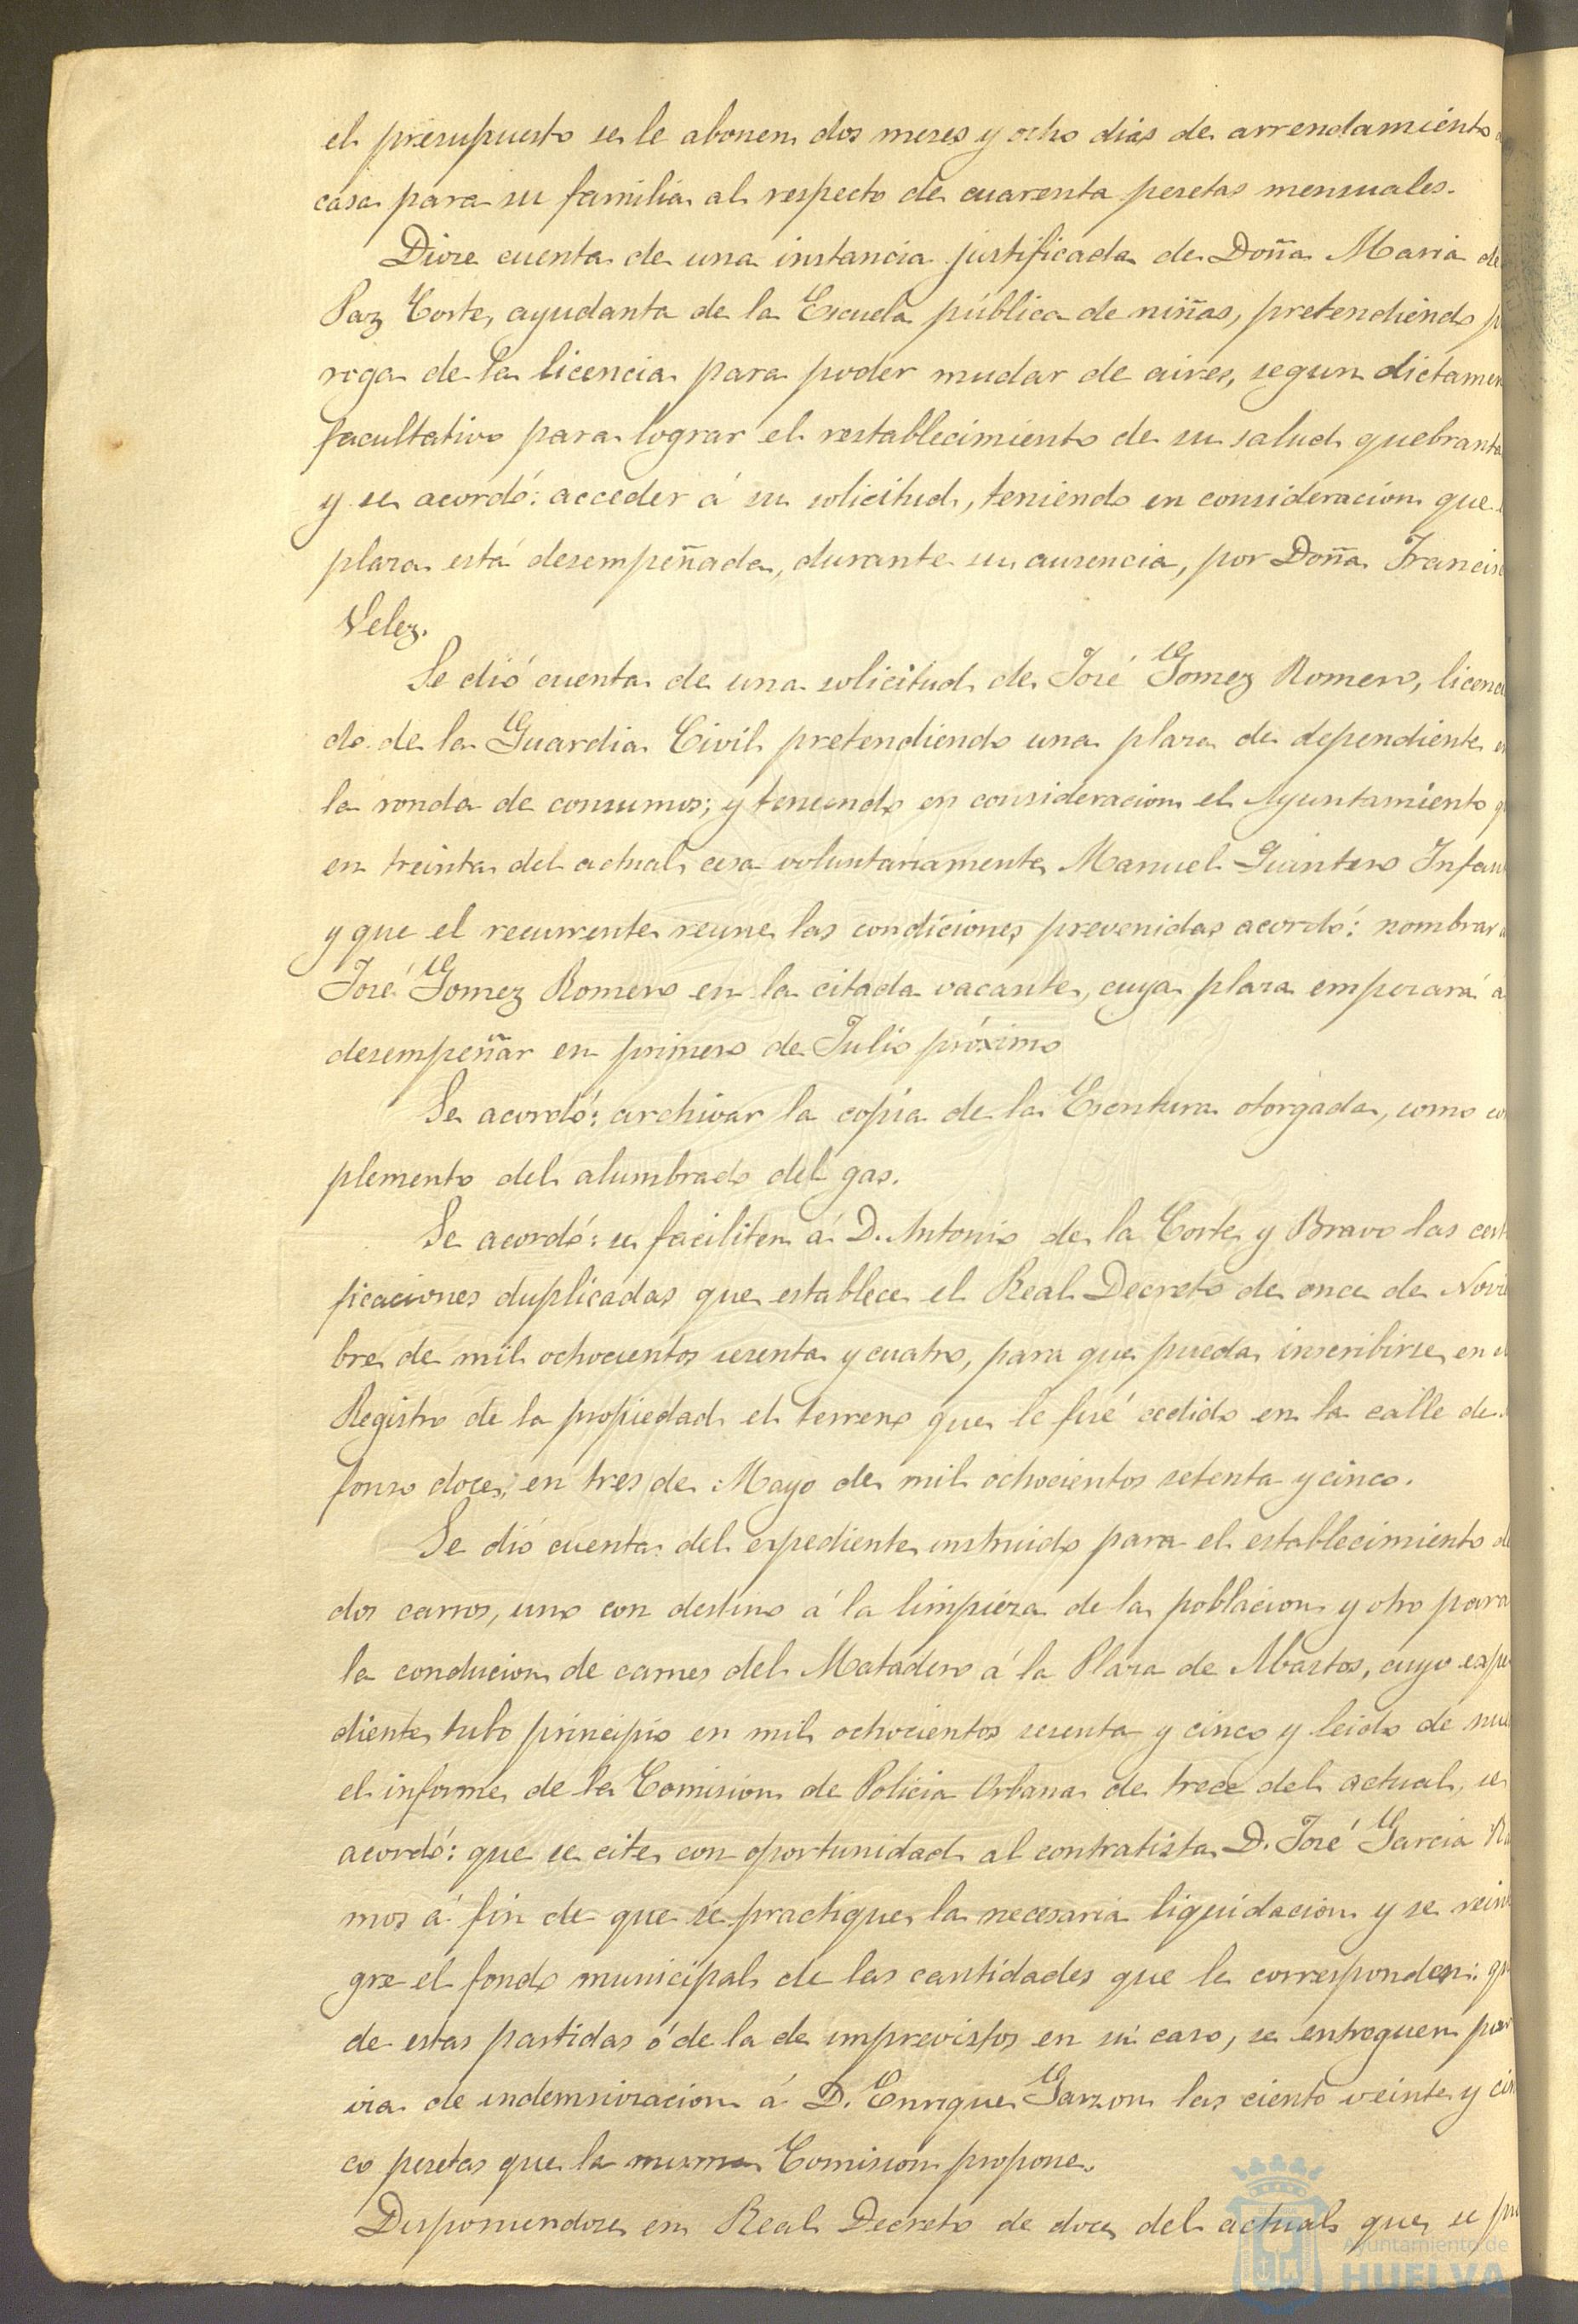 el presupuesto se le abonen dos meses y ocho dias de arrendamiento
casa para su familia al respecto de cuarenta pesetas mensuales.
Diose cuenta de una instancia justificada de Doña Maria de
Paz Corte, ayudanta de la Escuela pública de niñas, pretendiendo p
roga de la licencia para poder mudar de aires, segun dictamen
facultativo para lograr el restablecimiento de su salud quebranta
y se acordó: acceder á su solicitud, teniendo en consideracion que
plaza está desempeñada, durante su ausencia, por Doña Francis
Velez.
Se dió cuenta de una solicitud de José Gomez Romero, licenc
do de la Guardia Civil pretendiendo una plaza de dependiente e
la ronda de consumos; y teniendo en consideracion el Ayuntamiento q
en treinta del actual cesa voluntariamente Manuel Quintero Infan
y que el recurrente reune las condiciones prevenidas acordó: nombrar
José Gomez Romero en la citada vacante, cuya plaza empezará a
desempeñar en primero de Julio próximo
Se acordó: archivar la copia de la Escritura otorgada, como co
plemento del alumbrado del gas.
Se acordó: se faciliten á D. Antonio de la Corte y Bravo las cert
ficaciones duplicadas que establece el Real Decreto de once de Novi
bre de mil ochocientos sesenta y cuatro, para que pueda inscribirse en el
Registro de la propiedad el terreno que le fué cedido en la calle de
fonso doce, en tres de Mayo de mil ochocientos setenta y cinco.
Se dió cuenta del espediente instruido para el establecimiento de
dos carros, uno con destino á la limpieza de la poblacion y otro para
la conducion de carnes del Matadero á la Plaza de Abastos, cuyo espe
diente tubo principio en mil ochocientos sesenta y cinco y leido de nue
el informe de la Comision de Policia Urbana de trece del actual, se
acordó: que se cite con oportunidad al contratista D. José Garcia Ra
mos á fin de que se practique la necesaria liquidacion y se rein
gre el fondo municipal de las cantidades que le corresponden: qu
de estas partidas ó de la de imprevistos en su caso, se entreguen por
via de indemnizacion á D. Enrique Garzon las ciento veinte y cin
co pesetas que la misma Comision propone.
Disponiendose en Real Decreto de doce del actual que se pr
Ayuntamiento de
HUELVA